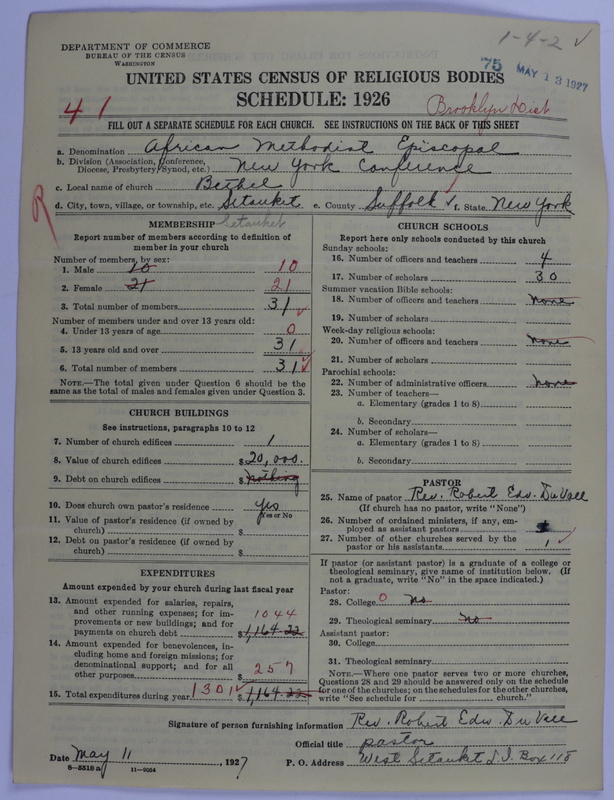 1-4-2 ✓
DEPARTMENT OF COMMERCE
BUREAU OF THE CENSUS
WASHINGTON
75 MAY 13 1927
UNITED STATES CENSUS OF RELIGIOUS BODIES
SCHEDULE: 1926
41
Brooklyn Dist
FILL OUT A SEPARATE SCHEDULE FOR EACH CHURCH. SEE INSTRUCTIONS ON THE BACK OF THIS SHEET
a. Denomination African Methodist Episcopal
b. Division (Association, Conference, Diocese, Presbytery, Synod, etc.) New York Conference
c. Local name of church Bethel
d. City, town, village, or township, etc. Setauket e. County Suffolk ✓ f. State New York
R
Setauket
MEMBERSHIP
Report number of members according to definition of
member in your church
Number of members, by sex:
1. Male 10 10
2. Female 21 21
3. Total number of members 31 ✓
Number of members under and over 13 years old:
4. Under 13 years of age 0
5. 13 years old and over 31
6. Total number of members 31 ✓
NOTE.—The total given under Question 6 should be the
same as the total of males and females given under Question 3.
CHURCH BUILDINGS
See instructions, paragraphs 10 to 12
7. Number of church edifices 1
8. Value of church edifices $20,000.
9. Debt on church edifices $ nothing
10. Does church own pastor's residence yes
Yes or No
11. Value of pastor's residence (if owned by
church) $
12. Debt on pastor's residence (if owned by
church) $
EXPENDITURES
Amount expended by your church during last fiscal year
13. Amount expended for salaries, repairs,
and other running expenses; for im-
provements or new buildings; and for 1044
payments on church debt $1,164.22
14. Amount expended for benevolences, in-
cluding home and foreign missions; for
denominational support; and for all 257
other purposes $
15. Total expenditures during year 1301 ✓ $1,164.22
CHURCH SCHOOLS
Report here only schools conducted by this church
Sunday schools:
16. Number of officers and teachers 4
17. Number of scholars 30
Summer vacation Bible schools:
18. Number of officers and teachers none
19. Number of scholars
Week-day religious schools:
20. Number of officers and teachers none
21. Number of scholars
Parochial schools:
22. Number of administrative officers none
23. Number of teachers—
a. Elementary (grades 1 to 8)
b. Secondary
24. Number of scholars—
a. Elementary (grades 1 to 8)
b. Secondary
PASTOR
25. Name of pastor Rev. Robert Edw. DuVall
(If church has no pastor, write "None")
26. Number of ordained ministers, if any, em-
ployed as assistant pastors
27. Number of other churches served by the
pastor or his assistants 1 ✓
If pastor (or assistant pastor) is a graduate of a college or
theological seminary, give name of institution below. (If
not a graduate, write "No" in the space indicated.)
Pastor:
28. College 0 no
29. Theological seminary no
Assistant pastor:
30. College
31. Theological seminary
NOTE.—Where one pastor serves two or more churches,
Questions 28 and 29 should be answered only on the schedule
for one of the churches; on the schedules for the other churches,
write "See schedule for ........ church."
Signature of person furnishing information Rev. Robert Edw. DuVall
Official title pastor
Date May 11, 1927
P. O. Address West Setauket L.I. Box 118
8—5518 a 11—9054